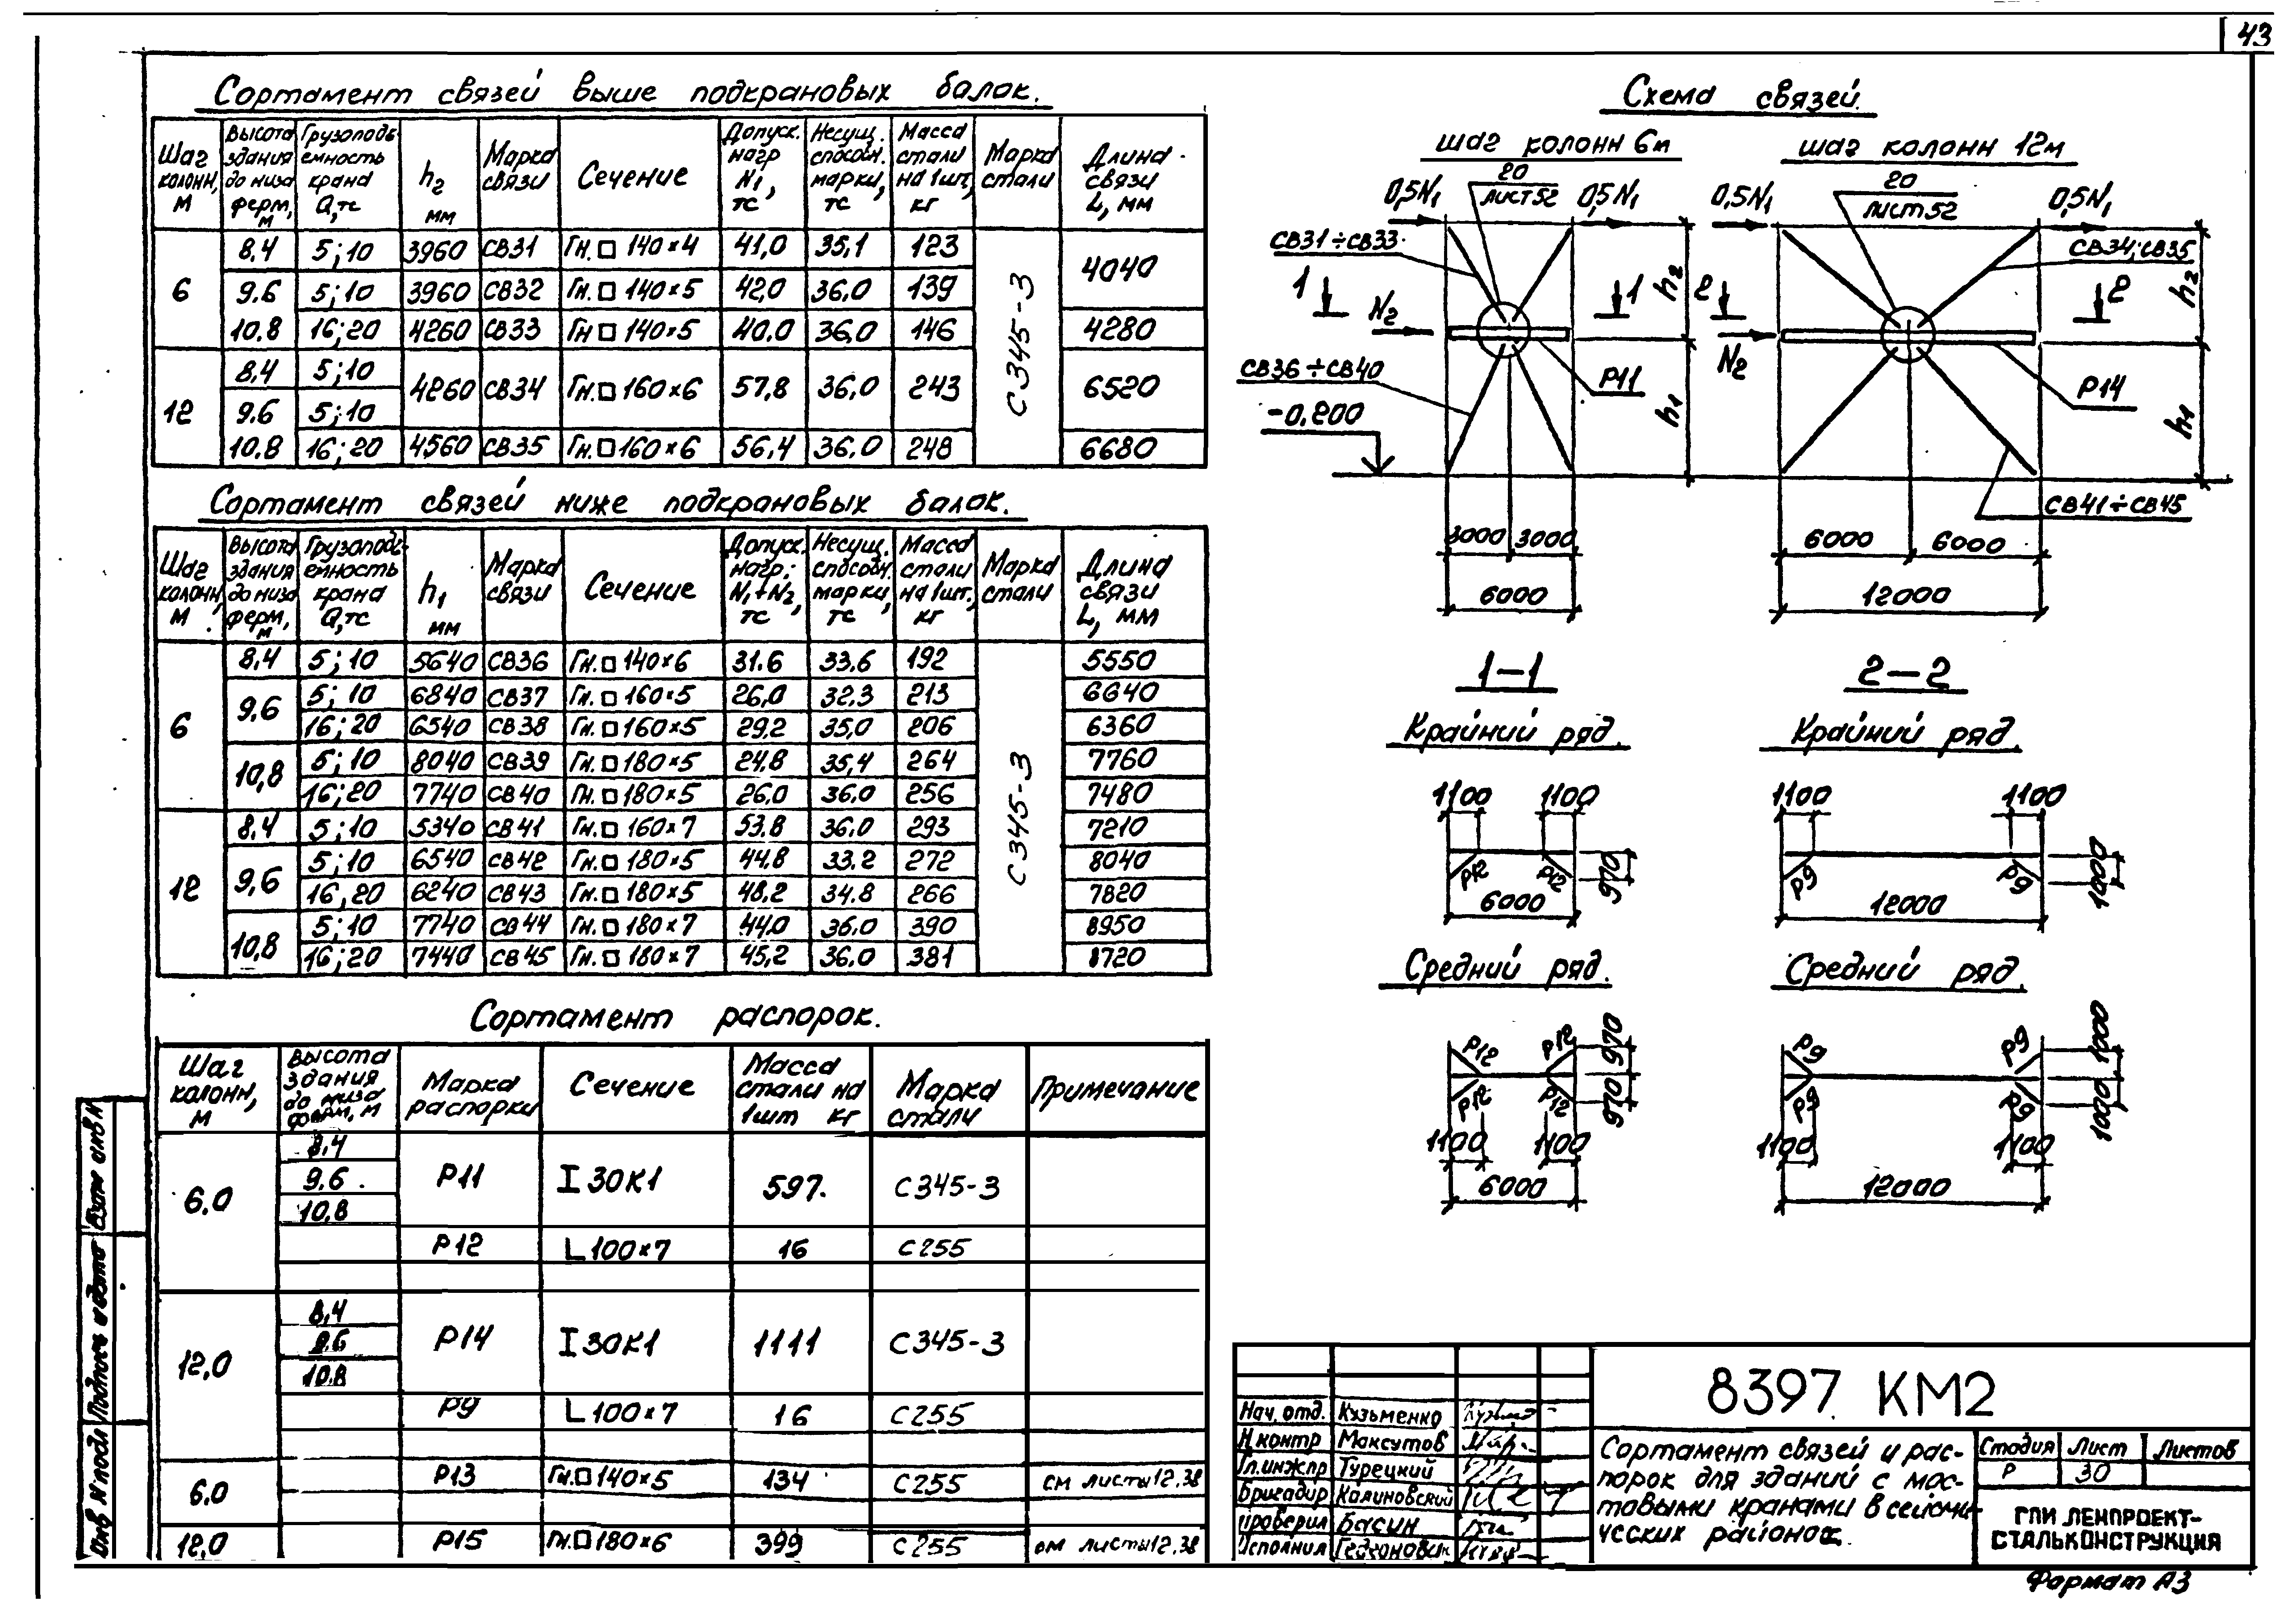 43
Сортамент связей выше подкрановых балак.
Шаг колонн, м | Высота здания до низа ферм, м | Грузоподъемность крана Q, тс | h2 мм | Марка связи | Сечение | Допуск. нагр N1, тс | Несущ. способн. марки, тс | Масса стали на 1шт, кг | Марка стали | Длина связи L, мм
6 | 8.4 | 5;10 | 3960 | СВ31 | Гн.□ 140×4 | 41,0 | 35,1 | 123 | С345-3 | 4040
9.6 | 5;10 | 3960 | СВ32 | Гн.□ 140×5 | 42,0 | 36,0 | 139
10.8 | 16;20 | 4260 | СВ33 | Гн □ 140×5 | 40,0 | 36,0 | 146 | 4280
12 | 8.4 | 5;10 | 4260 | СВ34 | Гн.□ 160×6 | 57,8 | 36,0 | 243 | 6520
9.6 | 5;10
10.8 | 16;20 | 4560 | СВ35 | Гн.□ 160×6 | 56,4 | 36,0 | 248 | 6680
Сортамент связей ниже подкрановых балак.
Шаг колонн, м | Высота здания до низа ферм, м | Грузоподъемность крана Q, тс | h1 мм | Марка связи | Сечение | Допуск. нагр. N1+N2, тс | Несущ. способн. марки, тс | Масса стали на 1шт., кг | Марка стали | Длина связи L, мм
6 | 8,4 | 5;10 | 5640 | СВ36 | Гн.□ 140×6 | 31.6 | 33.6 | 192 | С345-3 | 5550
9,6 | 5;10 | 6840 | СВ37 | Гн.□ 160×5 | 26,0 | 32.3 | 213 | 6640
16;20 | 6540 | СВ38 | Гн.□ 160×5 | 29,2 | 35,0 | 206 | 6360
10,8 | 5;10 | 8040 | СВ39 | Гн.□ 180×5 | 24,8 | 35,4 | 264 | 7760
16;20 | 7740 | СВ40 | Гн.□ 180×5 | 26,0 | 36,0 | 256 | 7480
12 | 8,4 | 5;10 | 5340 | СВ41 | Гн.□ 160×7 | 53,8 | 36,0 | 293 | 7210
9,6 | 5;10 | 6540 | СВ42 | Гн.□ 180×5 | 44.8 | 33.2 | 272 | 8040
16,20 | 6240 | СВ43 | Гн.□ 180×5 | 48,2 | 34.8 | 266 | 7820
10,8 | 5;10 | 7740 | СВ44 | Гн.□ 180×7 | 44,0 | 36,0 | 390 | 8950
16;20 | 7440 | СВ45 | Гн.□ 180×7 | 45,2 | 36,0 | 381 | 8720
Сортамент распорок.
Шаг колонн, м | Высота здания до низа ферм, м | Марка распорки | Сечение | Масса стали на 1шт кг | Марка стали | Примечание
6.0 | 8,4 | Р11 | I 30К1 | 597. | С345-3
9.6
10,8
Р12 | L 100×7 | 16 | С255
12,0 | 8,4 | Р14 | I 30К1 | 1111 | С345-3
9.6
10.8
Р9 | L 100×7 | 16 | С255
6.0 | Р13 | Гн.□ 140×5 | 134 | С255 | см листы 12,38
12.0 | Р15 | Гн.□ 180×6 | 399 | С255 | см листы 12,38
Схема связей.
шаг колонн 6м
0,5N1
20
лист 52
0,5N1
СВ31÷СВ33
1
1
N2
h2
СВ36÷СВ40
Р11
h1
-0.200
3000 3000
6000
шаг колонн 12м
0,5N1
20
лист 52
0,5N1
СВ34;СВ35
2
2
N2
h2
Р14
h1
СВ41÷СВ45
6000 6000
12000
1-1
Крайний ряд.
1100 1100
Р12 Р12
970
6000
Средний ряд.
Р12 Р12
970
Р12 Р12
970
1100 1100
6000
2-2
Крайний ряд.
1100 1100
Р9 Р9
1000
12000
Средний ряд.
Р9 Р9
1000
Р9 Р9
1000
1100 1100
12000
Взам инв N
Подпись и дата
Инв N подл
Нач. отд. Кузьменко
Н контр Максутов
Гл.инж.пр Турецкий
Бригадир Калиновский
Проверил Басин
Исполнил
8397 КМ2
Сортамент связей и рас-
порок для зданий с мос-
товыми кранами в сейсми-
ческих районах.
Стадия Лист Листов
Р 30
ГПИ ЛЕНПРОЕКТ-
СТАЛЬКОНСТРУКЦИЯ
Формат А3